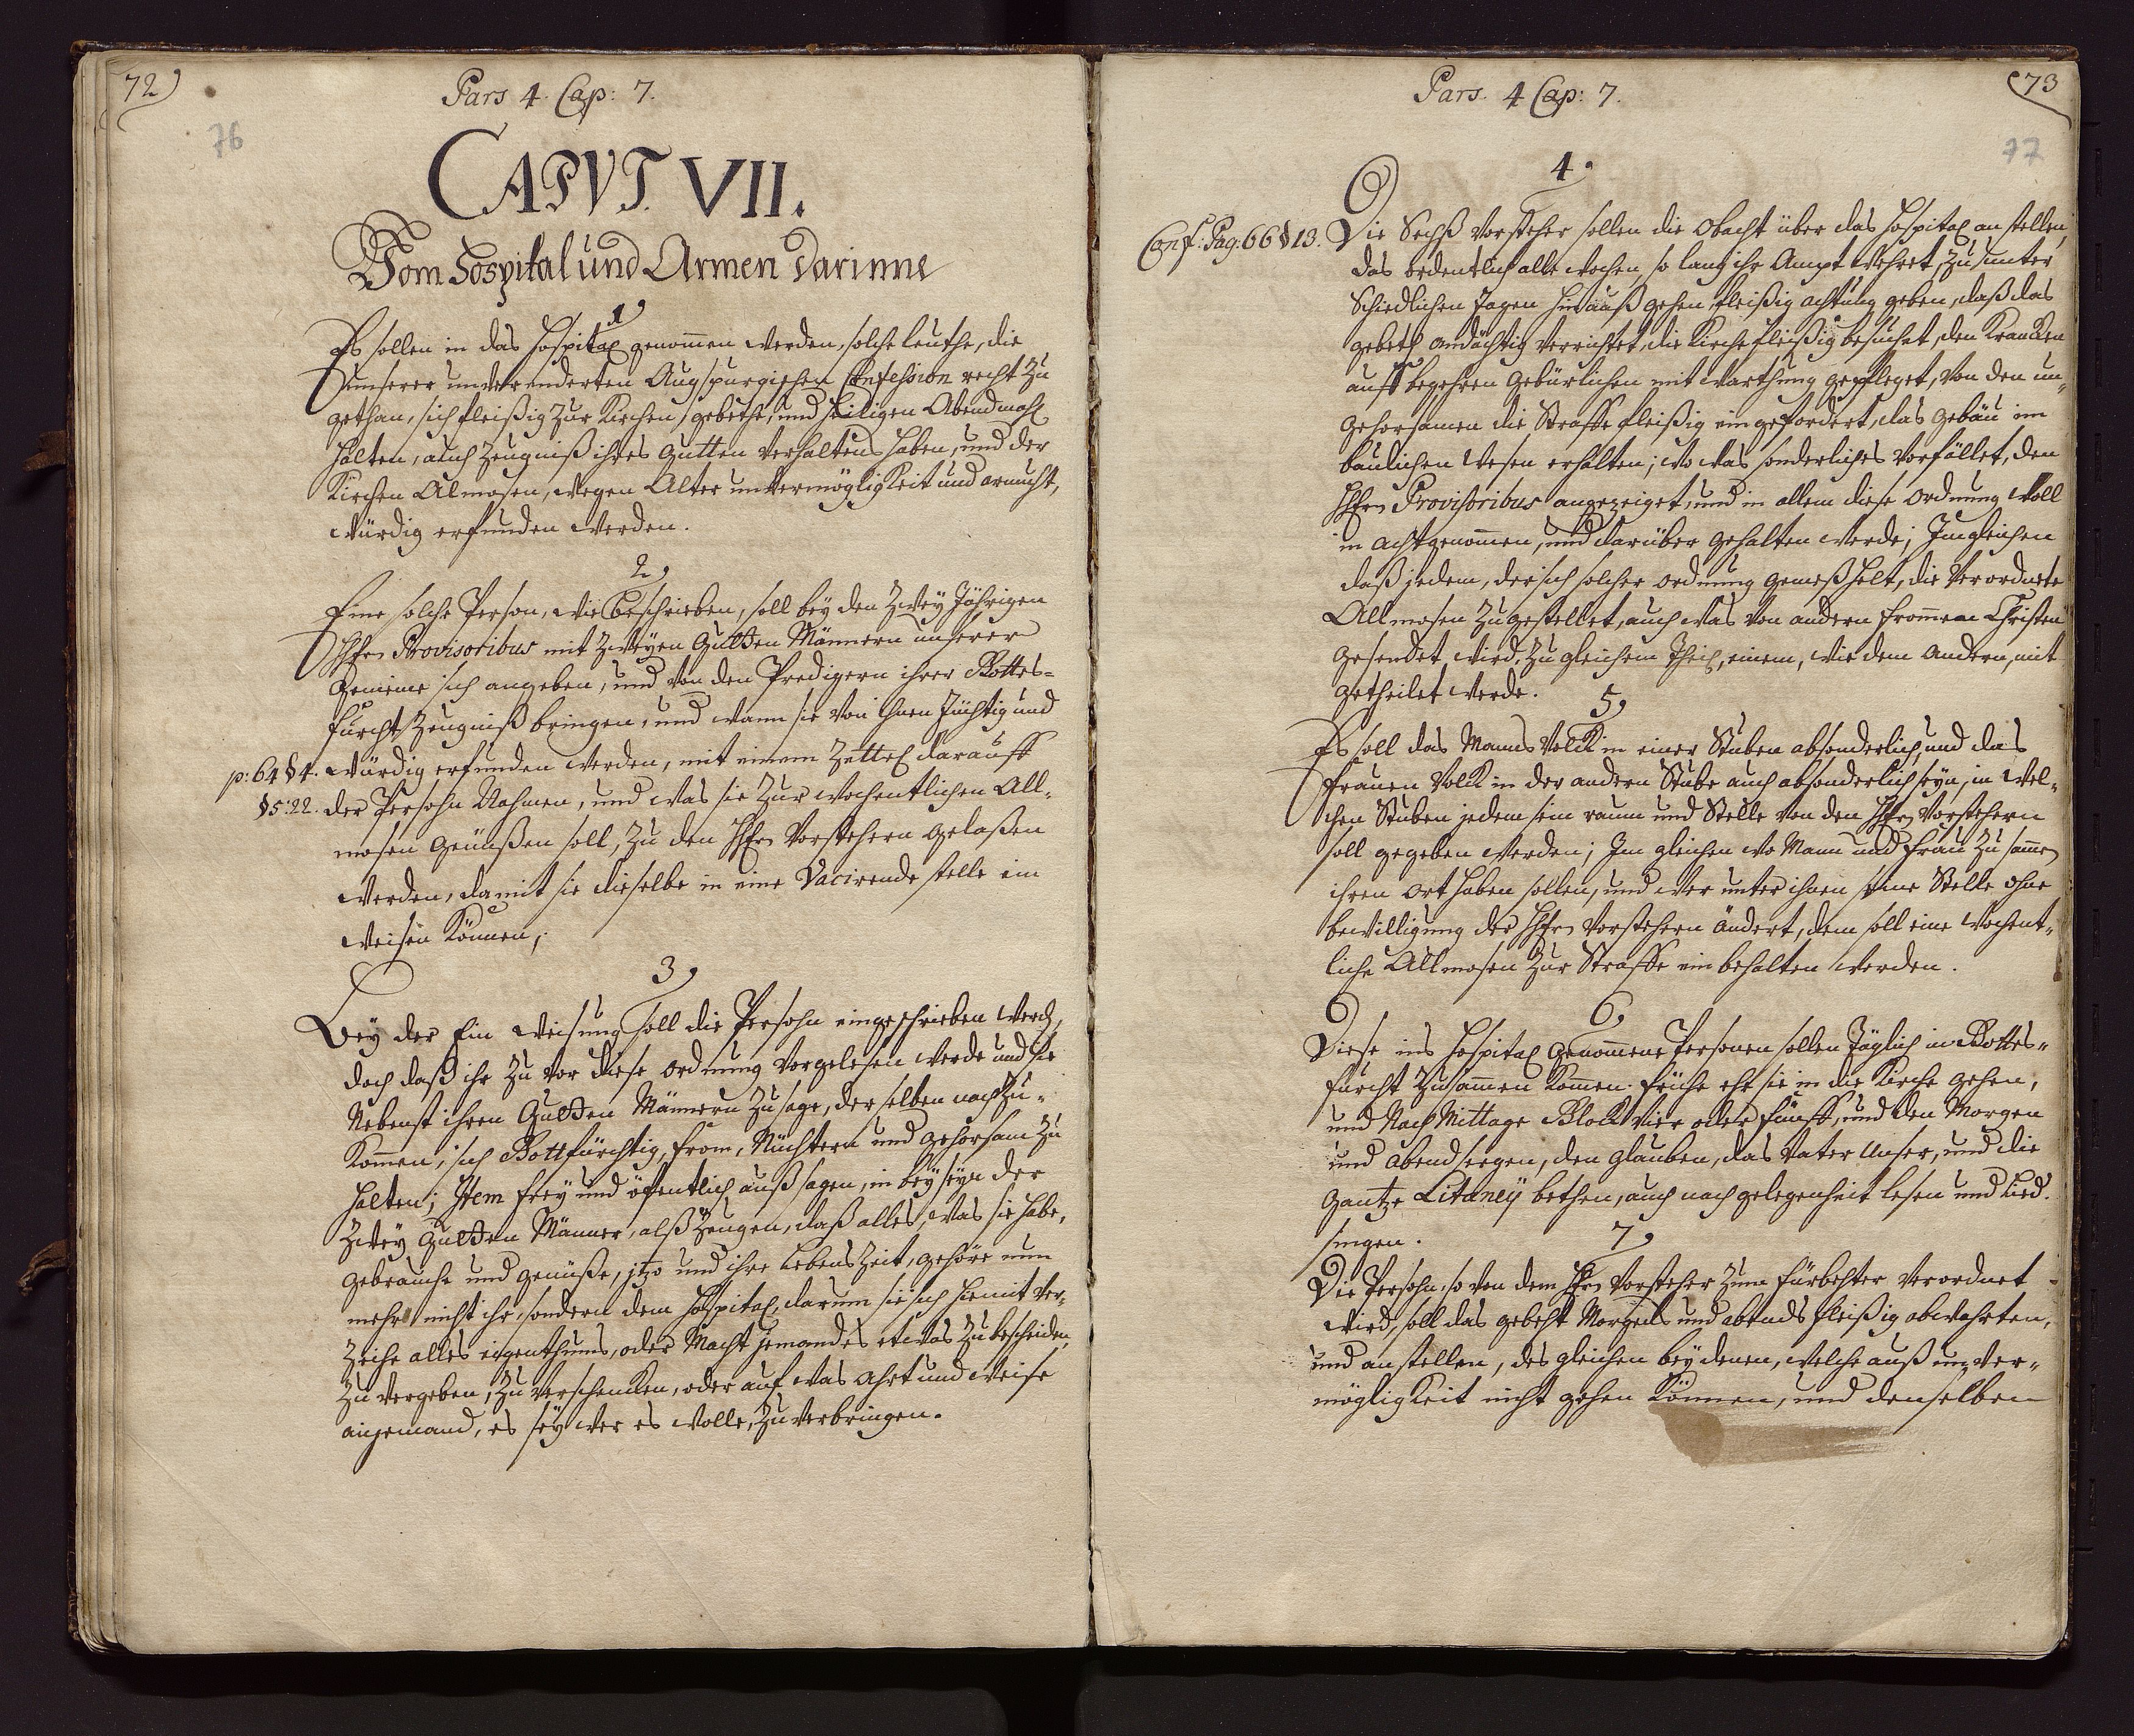 72)
76
Pars 4. Cap: 7.
CAPVT. VII.
Vom Hospital und Armen darinne
1,
Es sollen in das Hospital genommen werden, solche leuthe, die
unserer unveränderten Augspurgischen Confession recht zu
gethan, sich fleißig zur Kirchen, gebethe, und heiligen Abendmahl
halten, auch Zeugniß ihres gutten Verhaltens haben, und der
Kirchen Almosen, wegen Alter unvermögligkeit und armuht,
würdig erfunden werden.
2,
Eine solche Person, wie beschrieben, soll bey den Zwey Jährigen
HHrn Provisoribus mit Zweyen Gutten Männern unserer
Gemeine sich angeben, und von den Predigern ihrer Gottes-
furcht Zeugniß bringen, und wann sie von ihnen tüchtig und
p: 64 § 4. würdig erfunden werden, mit einem Zettel darauff
§ 5: 22. der Persohn Nahmen, und was sie zur wochentlichen All-
mosen genüßen soll, zu den HHrn Vorstehern gelaßen
werden, damit sie dieselbe in eine Vacirende stelle ein
weisen können,
3,
Bey der Ein weisung soll die Persohn eingeschrieben werd,
doch daß ihr zu vor diese ordnung vorgelesen werde und sie
Nebenst ihren Gutten Männern zu sage, derselben nach zu-
kommen, sich Gottfürchtig, from, Nüchtern und gehorsam zu
halten; Item frey und öffentlich auß sagen, in bey seyn der
Zwey Gutten Männer, alß Zeugen, daß alles, was sie habe,
gebrauche und genüße, itzo und ihre Lebens Zeit, gehöre nun
mehr nicht ihr, sondern dem Hospital, darum sie sich hiemit ver-
zeihe alles eigenthums, oder Macht jemandes etwas zu bescheiden,
zu vergeben, zu verschencken, oder auf was ahrt und weise
an jemand, es sey wer es wolle, zu verbringen.
Pars. 4 Cap: 7.
(73
77
4.
Conf: Pag: 66 § 13. Die Sechß Vorsteher sollen die Obacht über das Hospital anstellen,
das ordentlich alle wochen, so lang ihr Ampt wehret, zu unter
schiedlichen Tagen hinauß gehen, fleißig achtung geben, daß das
gebeth andächtig verrichtet, die Kirche fleißig besuchet, den Krancken
auff begehren gebürlichen mit warthung gepfleget, von den un-
gehorsamen die Straffe fleißig eingefordert, das gebäu im
baulichen wesen erhalten; wo was sonderliches vorfället, den
HHrn Provisoribus angezeiget, und in allem diese ordnung woll
in acht genommen, und darüber gehalten werde; Imgleichen
daß jedem, der sich solcher ordnung gemeß helt, die verordnete
Allmosen zugestellet, auch was von andern frommen Christen
gesendet wird, zu gleichem Theil, einem, wie dem andern, mit
getheilet werde.
5,
Es soll das Manns Volck in einer Stuben absonderlich, und das
Frauen Volck in der andern Stube auch absonderlich seyn, in wel-
chen Stuben jedem sein raum und Stelle von den HHrn Vorstehern
soll gegeben werden; Im gleichen wo Mann und Frau zu samen
ihren ort haben sollen, und wer unter ihnen seine Stelle ohne
bewilligung der HHrn Vorstehern ändert, dem soll eine wochent-
liche Allmosen zur Straffe ein behalten werden.
6,
Diese ins Hospital genommene Personen sollen täglich in Gottes-
furcht zusammen kommen. frühe ehe sie in die Kirche gehen,
und Nach Mittage Glock vier oder fünff, und den Morgen
und Abend seegen, den Glauben, das Vater Unser, und die
gantze Litaneÿ bethen, auch nach gelegenheit lesen und Lied.
singen.
7,
Die Persohn so von dem Hrn Vorsteher zum fürbehter verordnet
wird, soll das gebeht Morgens und abends fleißig abwahrten,
und anstellen, des gleichen bey denen, welche auß unver-
mögligkeit nicht gehen können, und denselben